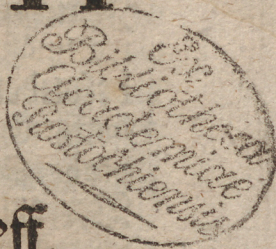 Ex
Bibliotheca
Academiae
Rostochiensis
eff